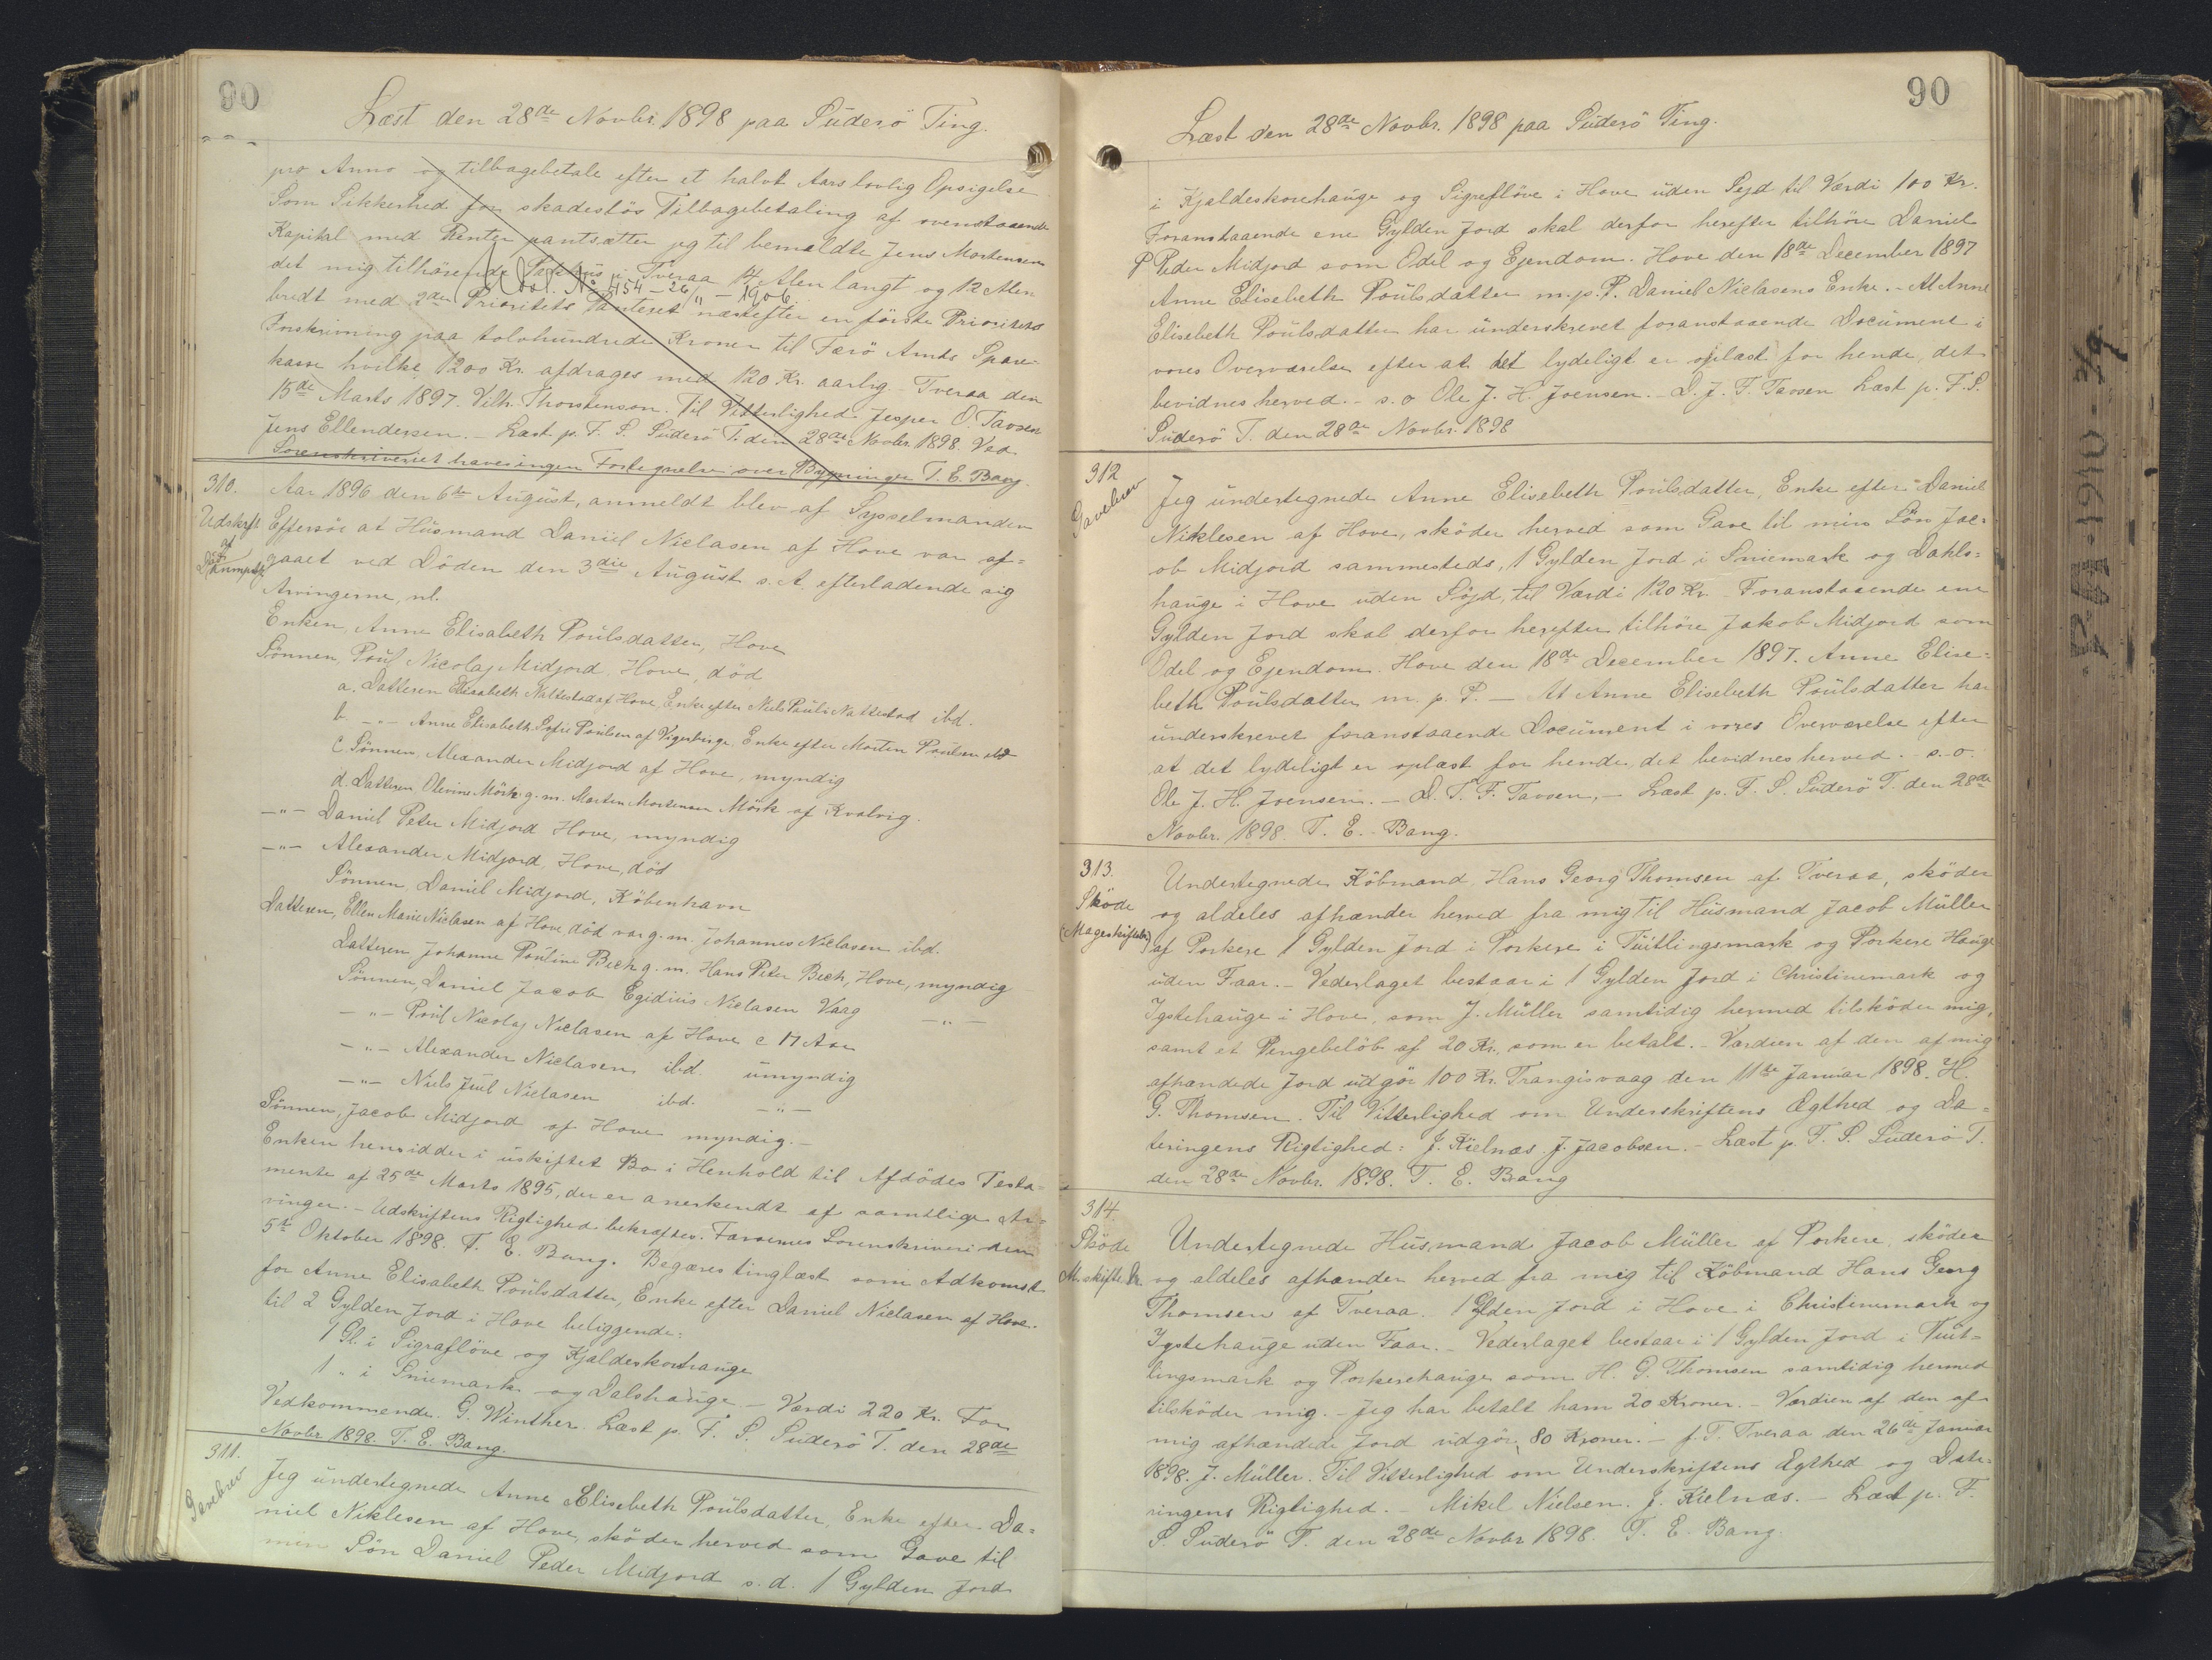 90
Læst den 28de Novbr. 1898 paa Suderö Ting.
pro Anno og tilbagebetale efter et halvt Aars lovlig Opsigelse
Som Sikkerhed for skadeslös Tilbagebetaling af ovenstaaende
Kapital med Renter pantsætter jeg til bemeldte Jens Mortensen
det mig tilhörende Pakhus i Tveraa 14 Alen langt og 12 Alen
No. 454 - 26/11 - 1906
bredt med 2den Prioritets Panteret næstefter en förste Prioritets
Forskrivning paa tolvhundrede Kroner til Færö Amts Spare-
kasse hvilke 1200 Kr. afdrages med 120 Kr. aarlig - Tveraa den
15de Marts 1897. Vilh. Thorstenson. Til Vitterlighed: Jesper O. Tavsen
Jens Ellendersen. - Læst p. F. S. Suderö T. den 28de Novbr. 1898. Ved
Sorenskriveriet haves ingen Fortegnelse over Bygninger T. E. Bang.
310.
Udskrift
af
Aar 1896 den 6te August, anmeldt blev af Sysselmanden
Effersöe at Husmand Daniel Niclasen af Hove var af-
gaaet ved Döden den 3die August s. A. efterladende sig
Arvingerne, nl.
Enken, Anne Elisabeth Poulsdatter, Hove
Sönnen, Poul Nicolaj Midjord, Hove, död
a. Datteren Elisabeth Nattestad af Hove, Enke efter Niels Pauli Nattestad ibd.
b. -"- Anne Elisabeth Sofie Poulsen af Vigerbirge, Enke efter Morten Poulsen ibd
c. Sönnen, Alexander Midjord af Hove, myndig
d. Datteren Olevine Mörk g. m. Morten Mortensen Mörk af Kvalvig.
-"- Daniel Peter Midjord Hove, myndig
-"- Alexander Midjord, Hove, död
Sönnen, Daniel Midjord, Köbenhavn
Datteren, Ellen Marie Niclasen af Hove, död var g. m. Johannes Niclasen ibd.
Datteren Johanne Pouline Bech g. m. Hans Peter Bech, Hove, myndig
Sönnen, Daniel Jacob Egidius Niclasen Vaag -"-
-"- Poul Nicolaj Niclasen af Hove c 17 Aar
-"- Alexander Niclasen ibd. umyndig
-"- Niels Juul Niclasen ibd. -"-
Sönnen, Jacob Midjord af Hove myndig. -
Enken hensidder i uskiftet Bo i Henhold til Afdödes Testa-
mente af 25de Marts 1895, der er anerkendt af samtlige Ar-
vinger. - Udskriftens Rigtighed bekræftes. Færoernes Sorenskriveri den
5te Oktober 1898. T. E. Bang. Begæres tinglæst som Adkomst
for Anne Elisabeth Poulsdatter, Enke efter Daniel Niclasen af Hove
til 2 Gylden Jord i Hove beliggende:
1 Gl. i Sigraflöve og Kjaldeskorhauge
1 " i Sniemark og Dalshauge - Værdi 220 Kr. For
Vedkommende. G. Winther. Læst p. F. S. Suderö T. den 28de
Novbr 1898. T. E. Bang.
311.
Gavebrev
Jeg undertegnede Anne Elisebeth Poulsdatter, Enke efter Da-
niel Niklesen af Hove, sköder herved som Gave til
min Sön Daniel Peder Midjord s. d. 1 Gylden Jord
90
Læst den 28de Novbr. 1898 paa Suderö Ting.
i Kjaldeskorehauge og Sigreflöve i Hove uden Sejd til Værdi 100 Kr.
Foranstaaende ene Gylden Jord skal derfor herefter tilhöre Daniel
Peder Midjord som Odel og Ejendom. Hove den 18de December 1897
Anne Elisebeth Poulsdatter m. p. P. Daniel Niclasens Enke. - At Anne
Elisebeth Poulsdatter har underskrevet foranstaaende Document i
vores Overværelse efter at det lydeligt er oplæst for hende, det
bevidnes herved. - s. o Ole J. H. Joensen. - D. J. F. Tavsen Læst p. F. S.
Suderö T. den 28de Novbr. 1898
312
Gavebrev
Jeg undertegnede Anne Elisebeth Poulsdatter, Enke efter Daniel
Niklesen af Hove, sköder herved som Gave til min Sön Jac-
ob Midjord sammesteds, 1 Gylden Jord i Sniemark og Dahls-
hauge i Hove uden Söjd, til Værdi 120 Kr. Foranstaaende ene
Gylden Jord skal derfor herefter tilhöre Jakob Midjord som
Odel og Ejendom. Hove den 18de December 1897. Anne Elise-
beth Poulsdatter m. p. P. - At Anne Elisebeth Poulsdatter har
underskrevet foranstaaende Document i vores Overværelse efter
at det lydeligt er oplæst for hende, det bevidnes herved. - s. o.
Ole J. H. Joensen. - D. T. F. Tavsen, - Læst p. F. S. Suderö T. den 28de
Novbr. 1898. T. E. Bang.
313.
Sköde
(Mageskiftebr)
Undertegnede Köbmand Hans Georg Thomsen af Tveraa, sköder
og aldeles afhænder herved fra mig til Husmand Jacob Müller
af Porkere 1 Gylden Jord i Porkere i Tuitlingsmark og Porkere Hauge
uden Faar. - Vederlaget bestaar i 1 Gylden Jord i Christinemark og
Ygstehauge i Hove, som J. Müller samtidig hermed tilsköder mig,
samt et Pengebelöb af 20 Kr, som er betalt. - Værdien af den af mig
afhændede Jord udgör 100 Kr. Trangisvaag den 11te Januar 1898. H.
G. Thomsen. Til Vitterlighed om Underskriftens Ægthed og Da-
teringens Rigtighed: J. Kielnæs. J. Jacobsen. - Læst p. F. S. Suderö T.
den 28de Novbr. 1898. T. E. Bang
314.
Sköde
M.skiftebr.
Undertegnede Husmand Jacob Müller af Porkere sköder
og aldeles afhænder herved fra mig til Köbmand Hans Georg
Thomsen af Tveraa 1 Gylden Jord i Hove i Christinemark og
Ygstehauge uden Faar. - Vederlaget bestaar i 1 Gylden Jord i Tuit-
lingsmark og Porkerehauge som H. G. Thomsen samtidig hermed
tilsköder mig. - Jeg har betalt ham 20 Kroner. - Værdien af den af
mig afhændede Jord udgör 80 Kroner. - f. T. Tveraa den 26de Januar
1898. J. Müller. Til Vitterlighed om Underskriftens Ægthed og Date-
ringens Rigtighed. Mikel Nielsen. J. Kielnæs. - Læst p. F.
S. Suderö T. den 28de Novbr 1898. T. E. Bang.